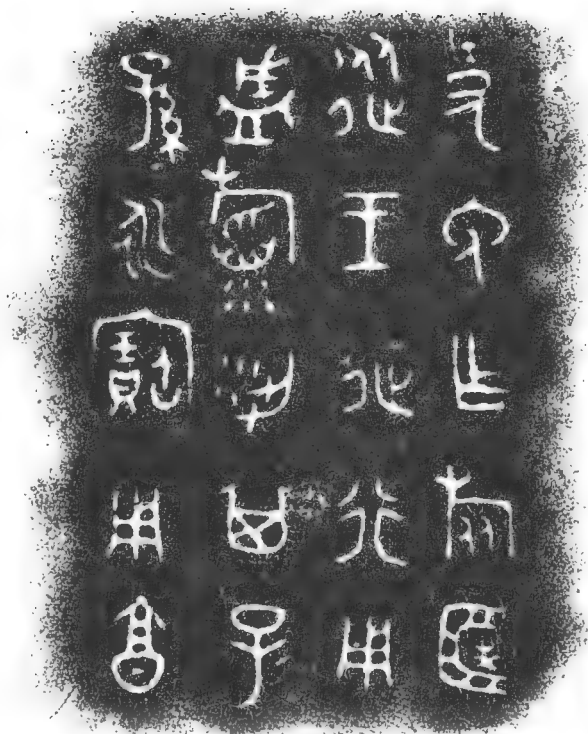 史免乍旅匡
從王征行用
盛稻粱其子
孫永寶用享